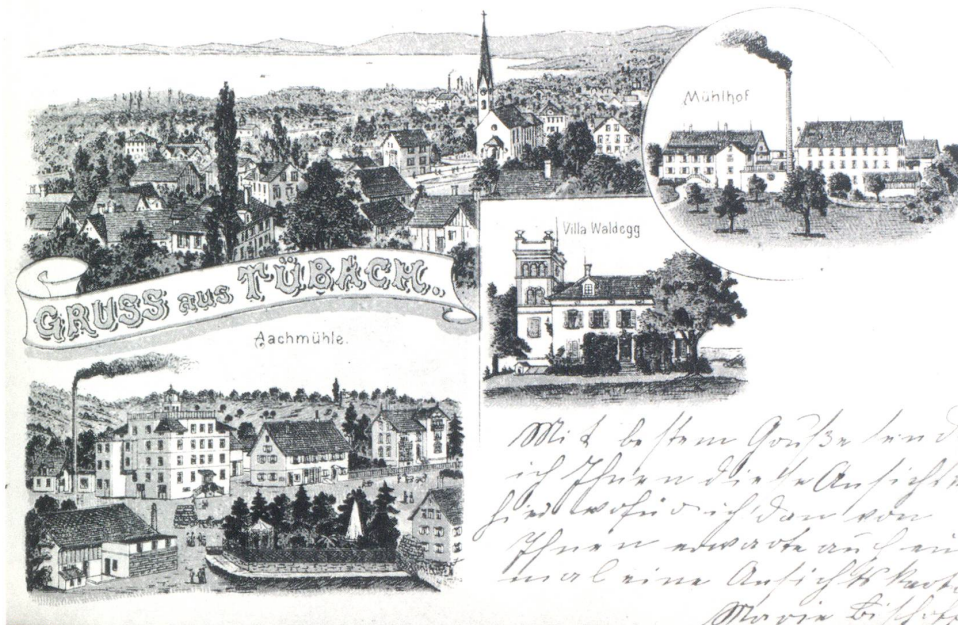 Mühlhof
Villa Waldegg
GRUSS aus TÜBACH.
Aachmühle.
Mit bestem Gruße send
ich Ihnen diese Ansichts
hier wofür ich dan von
Ihnen erwarte auch ein
mal eine Ansichtskarte
Marie Bischof